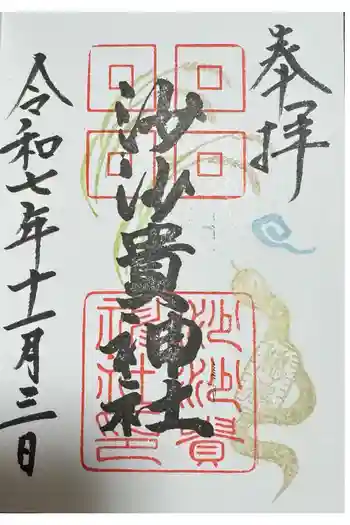 奉拝
沙沙貴神社
沙沙貴神社印
令和七年十一月三日